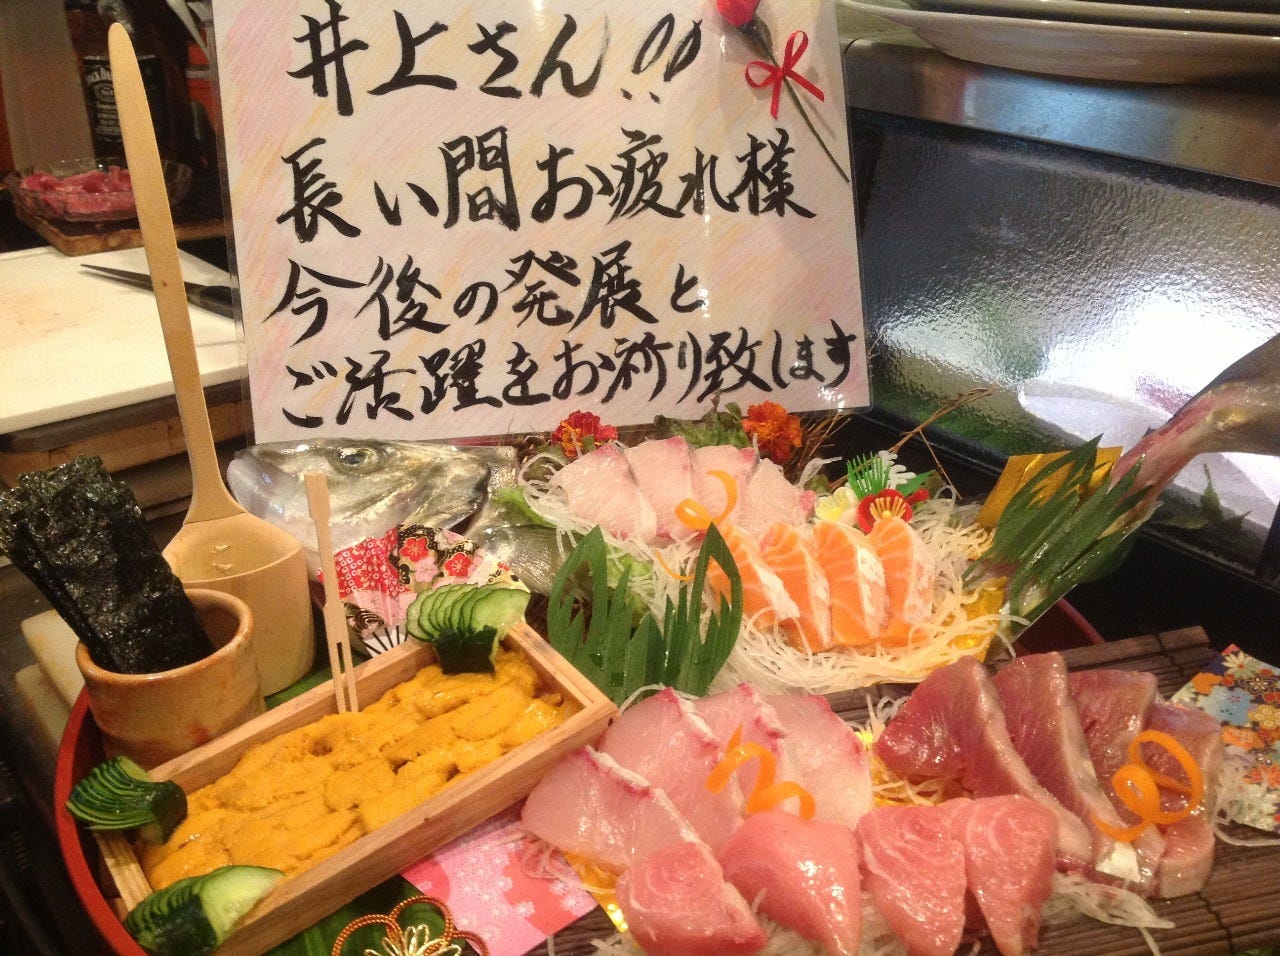 井上さん!!
長い間お疲れ様
今後の発展と
ご活躍をお祈り致します